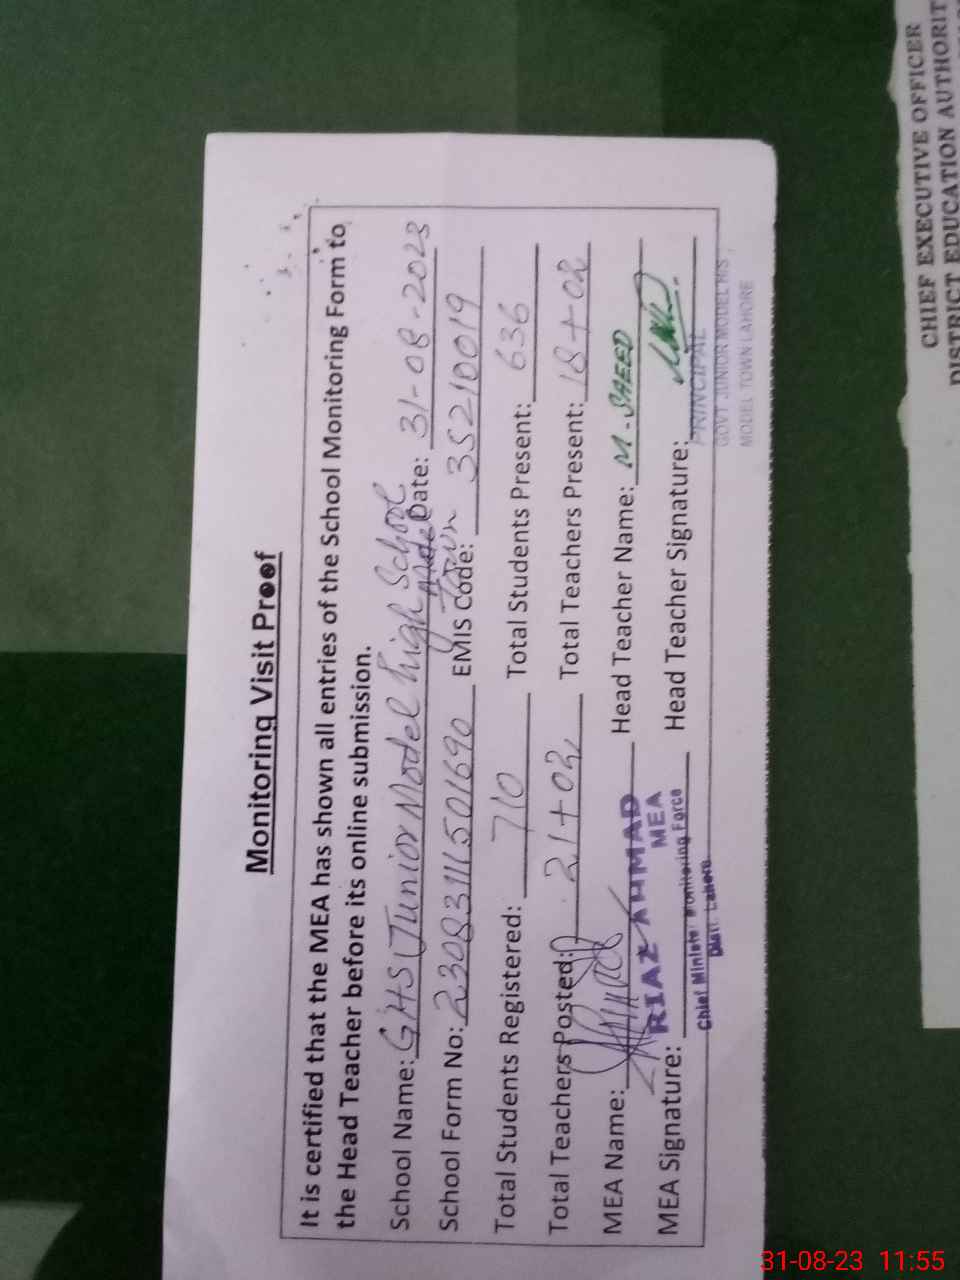 Monitoring Visit Proof
It is certified that the MEA has shown all entries of the School Monitoring Form to
the Head Teacher before its online submission.
School Name: GHS (Junior Model high School Model Town Date: 31-08-2023
School Form No: 23083111501690 EMIS Code: 35210019
Total Students Registered: 710 Total Students Present: 636
Total Teachers Posted: 21+02 Total Teachers Present: 18+02
MEA Name: Head Teacher Name: M-SAEED
RIAZ AHMAD
MEA
MEA Signature: Head Teacher Signature:
Chief Minister Monitoring Force
Distt. Lahore
PRINCIPAL
GOVT JUNIOR MODEL H/S,
MODEL TOWN LAHORE
CHIEF EXECUTIVE OFFICER
DISTRICT EDUCATION AUTHORIT
31-08-23 11:55